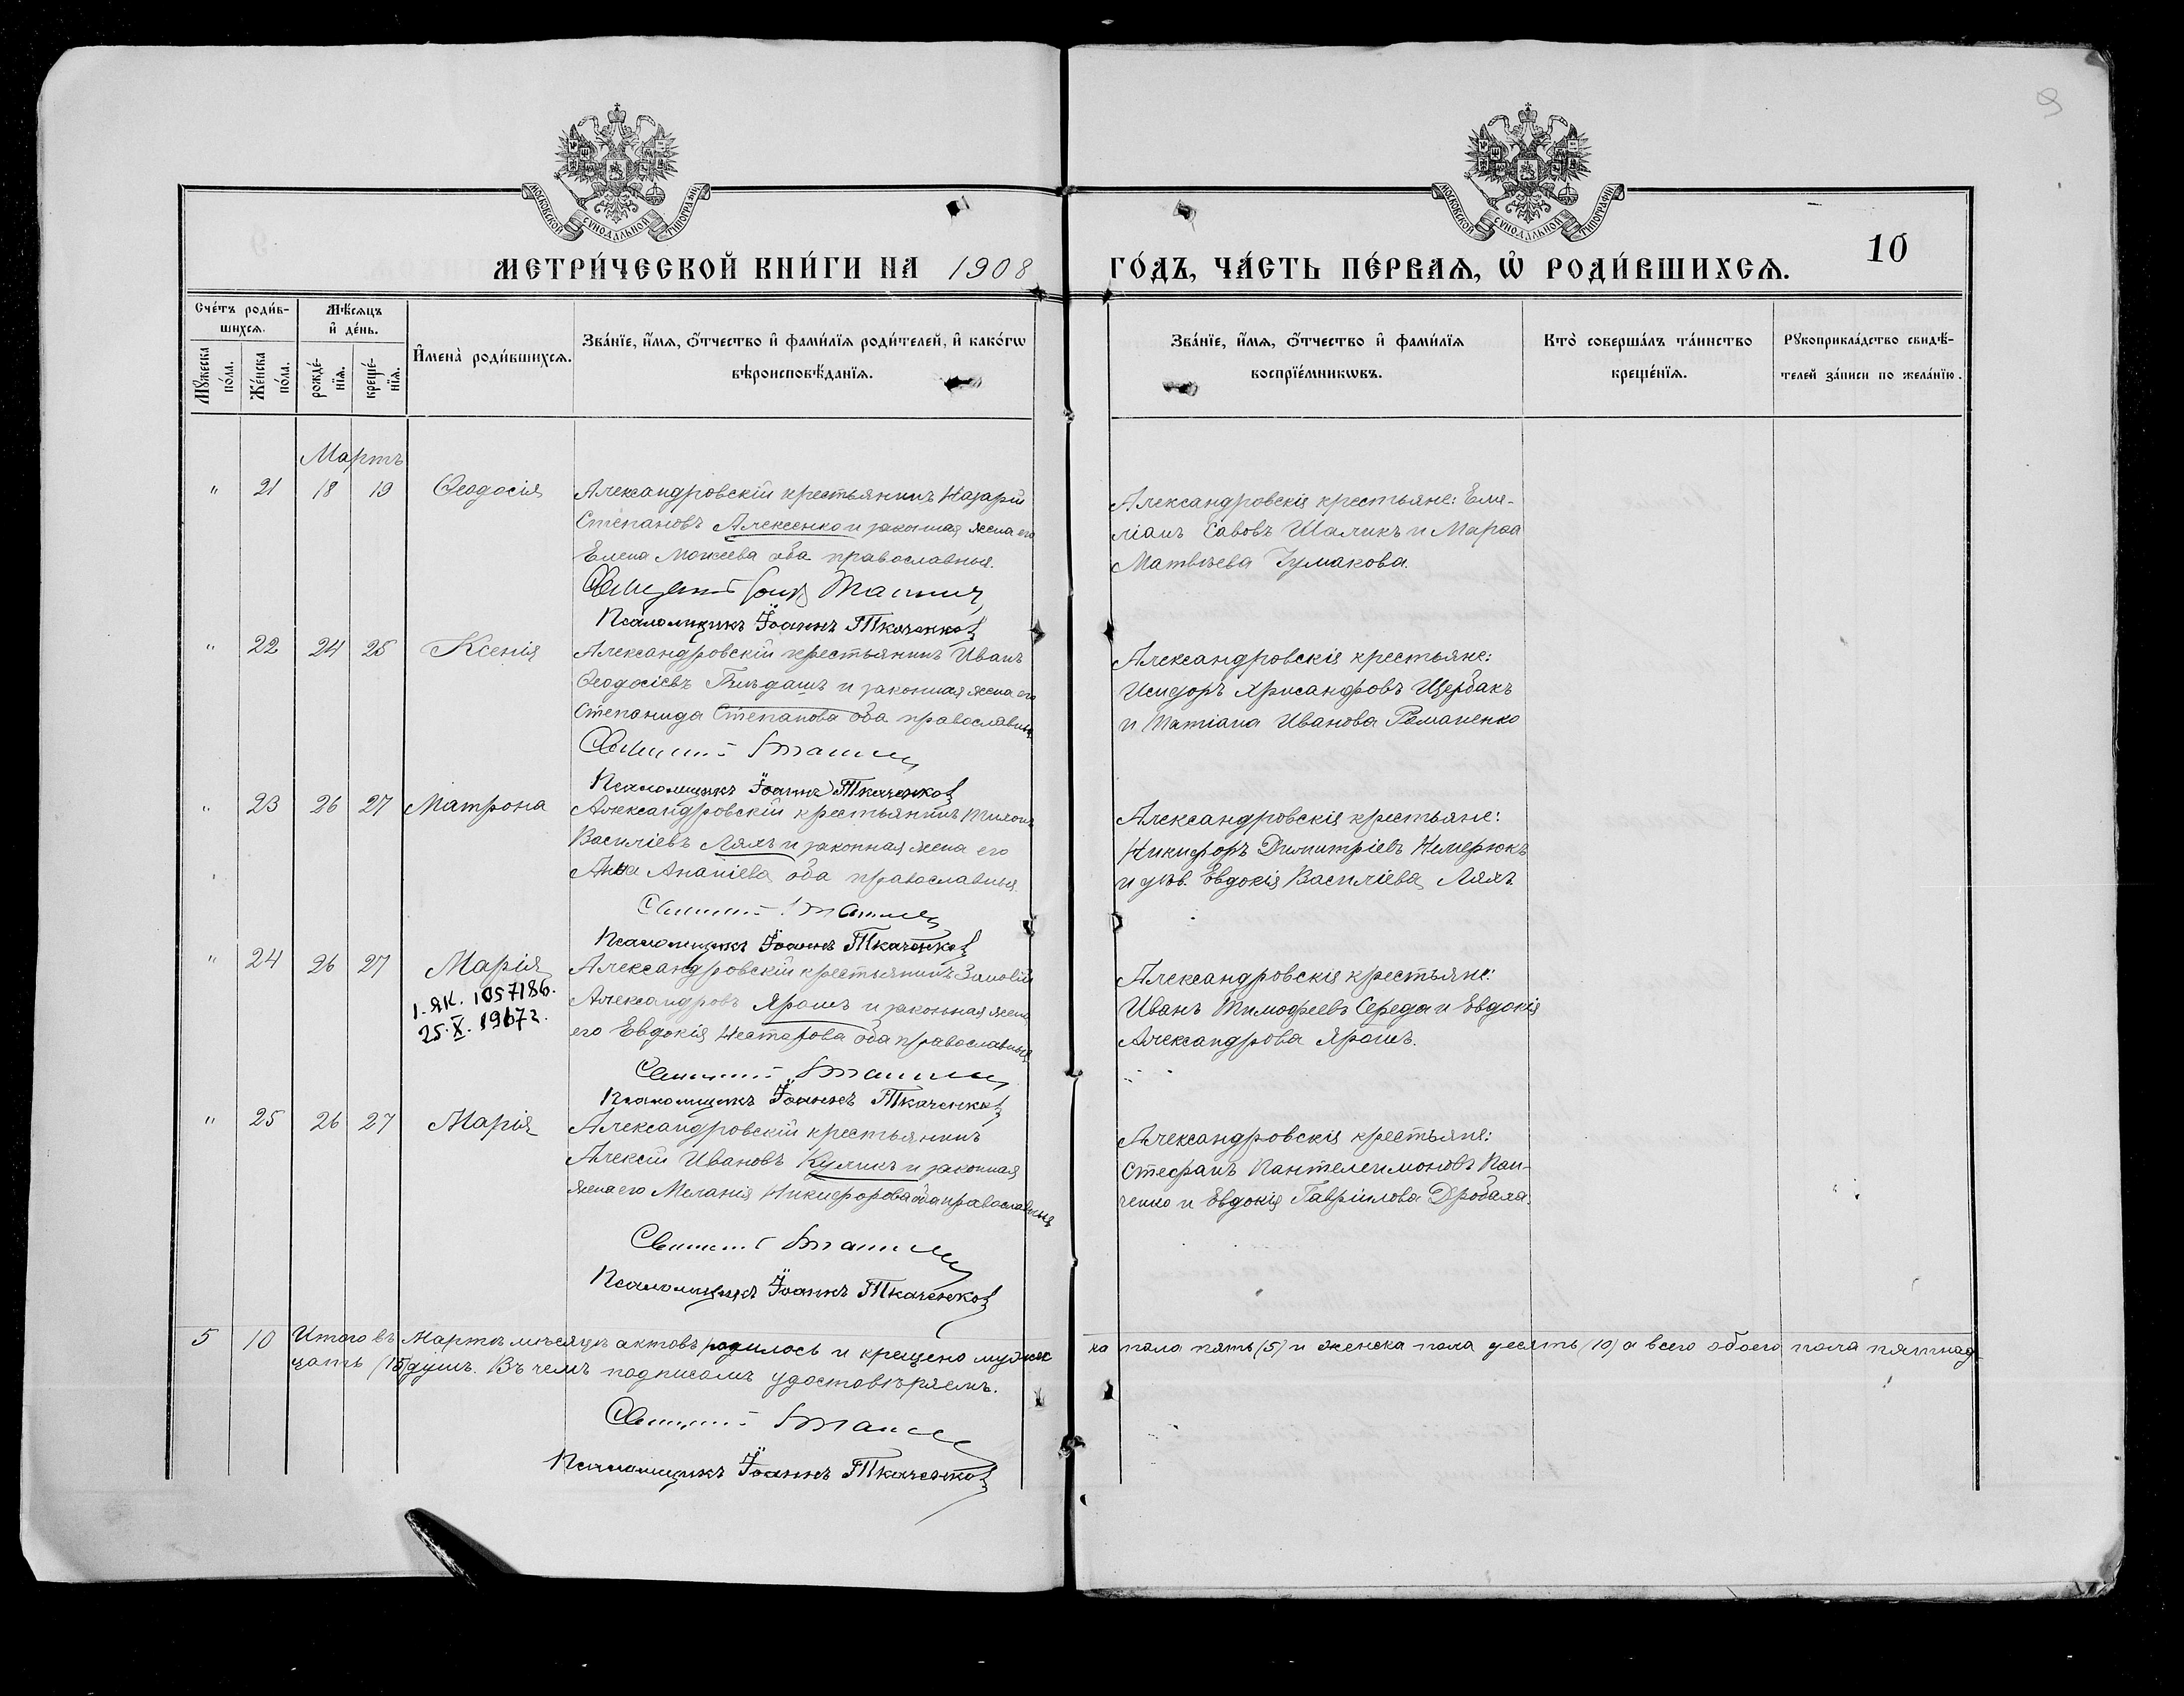 МОСКОВСКОЙ СѴНОДАЛЬНОЙ ТИПОГРАФІИ
МОСКОВСКОЙ СѴНОДАЛЬНОЙ ТИПОГРАФІИ
9
10
МЕТРИ́ЧЕСКОЙ КНИ́ГИ НА 1908
ГО́ДЪ, ЧА́СТЬ ПЕ́РВАЯ, Ѡ҆ РОДИ́ВШИХСЯ.
Сче́тъ роди́в-
шихся.
Мꙋжеска по́ла.
Же́нска по́ла.
Мѣ́сяцъ
и҆ де́нь.
рожде́-
нїя.
креще́-
нїя.
И҆мена̀ роди́вшихся.
Зва́нїе, и҆́мя, ѻ҆́тчество и҆ фами́лїя роди́телей, и҆ како́гѡ
вѣроисповѣ́данїя.
Зва́нїе, и҆́мя, ѻ҆́тчество и҆ фами́лїя
воспрїе́мникѡвъ.
Кто̀ соверша́лъ та́инство
креще́нїя.
Рꙋкоприкла́дство свидѣ́-
телей за́писи по жела́нїю.
Мартъ
" 21 18 19 Ѳеодосія
Александровскій крестьянинъ Назарій
Степановъ Алексенко и законная жена его
Елена Мокеева оба православные.
Псаломщикъ Іоаннъ Ткаченко
Александровскіе крестьяне: Еми-
ліанъ Савовъ Шаликъ и Марѳа
Матвѣева Чумакова.
" 22 24 25 Ксенія
Александровскій крестьянинъ Иванъ
Ѳеодосіевъ и законная жена его
Степанида Степанова оба православные
Псаломщикъ Іоаннъ Ткаченко
Александровскіе крестьяне:
Исидоръ Хрисанфовъ Щербакъ
и Татіана Иванова Романенко
" 23 26 27 Матрона
Александровскій крестьянинъ Тихонъ
Василіевъ Ляхъ и законная жена его
Анна Ананіева оба православные
Псаломщикъ Іоаннъ Ткаченко
Александровскіе крестьяне:
Никифоръ Димитріевъ Немерюкъ
и дѣв. Евдокія Василіева Ляхъ
" 24 26 27 Марія
1-ЯК. 1057186.
25.X.1967г.
Александровскій крестьянинъ Зиновій
Александровъ Ярошъ и законная жена
его Евдокія Несторова оба православные
Псаломщикъ Іоаннъ Ткаченко
Александровскіе крестьяне:
Иванъ Тимофеевъ Середа и Евдокія
Александрова Ярошъ.
" 25 26 27 Марія
Александровскій крестьянинъ
Алексій Ивановъ Куликъ и законная
жена его Меланія Никифорова оба православные
Псаломщикъ Іоаннъ Ткаченко
Александровскіе крестьяне:
Стефанъ Пантелеимоновъ Пан-
ченко и Евдокія Гавріилова Дробаха.
5 10 Итого въ Мартѣ мѣсяцѣ актовъ родилось и крещено мужес
ка пола пять (5) и женска пола десять (10) а всего обоего пола пятнад-
цать (15) душъ. Въ чемъ подписомъ удостовѣряемъ.
Псаломщикъ Іоаннъ Ткаченко